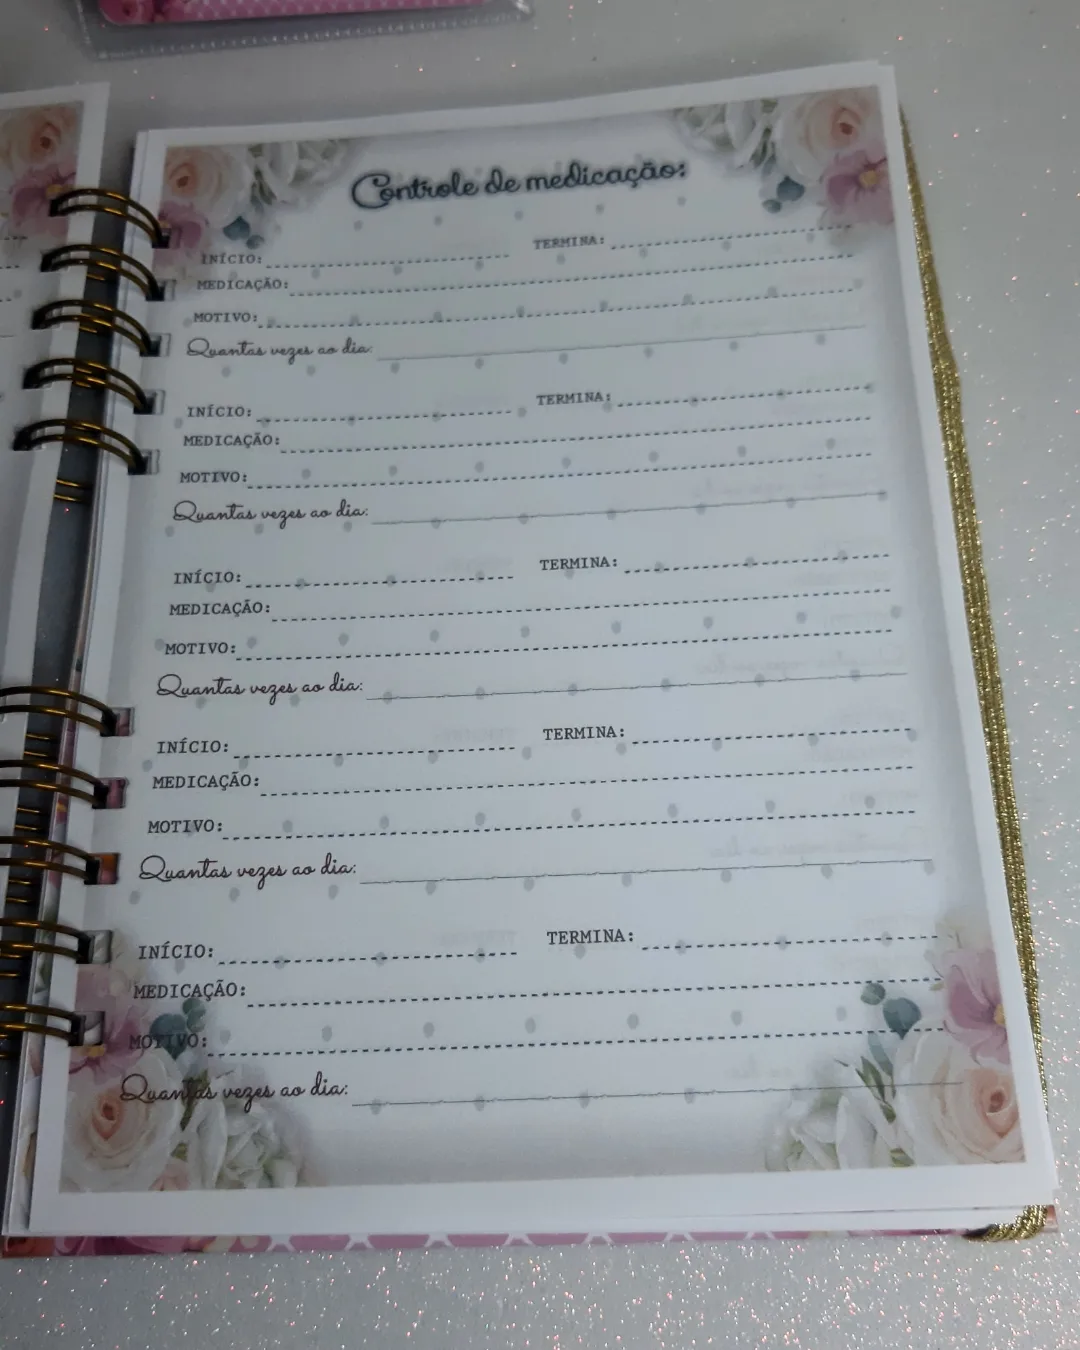 Controle de medicação:
INÍCIO: TERMINA:
MEDICAÇÃO:
MOTIVO:
Quantas vezes ao dia:
INÍCIO: TERMINA:
MEDICAÇÃO:
MOTIVO:
Quantas vezes ao dia:
INÍCIO: TERMINA:
MEDICAÇÃO:
MOTIVO:
Quantas vezes ao dia:
INÍCIO: TERMINA:
MEDICAÇÃO:
MOTIVO:
Quantas vezes ao dia:
INÍCIO: TERMINA:
MEDICAÇÃO:
MOTIVO:
Quantas vezes ao dia: